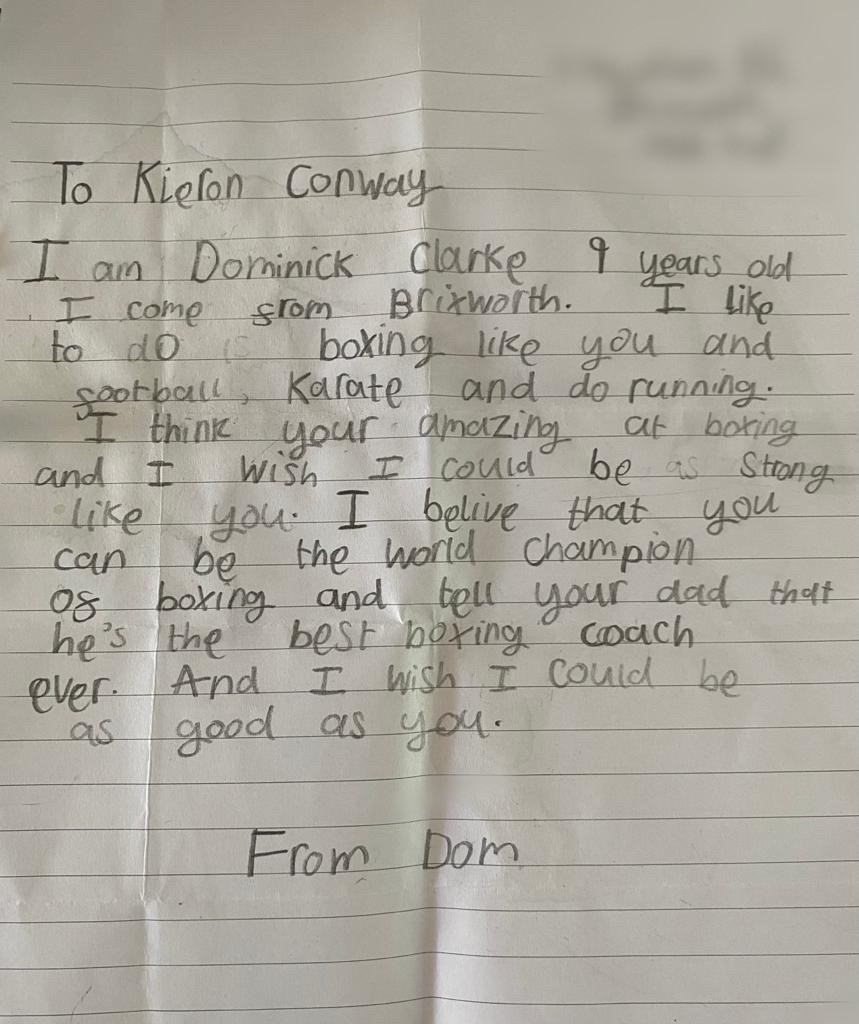 To Kieron Conway
I am Dominick Clarke 9 years old
I come from Brixworth. I like
to do boxing like you and
football, Karate and do running.
I think your amazing at boxing
and I wish I could be as strong
like you. I belive that you
can be the world champion
of boxing and tell your dad that
he's the best boxing coach
ever. And I wish I could be
as good as you.
From Dom